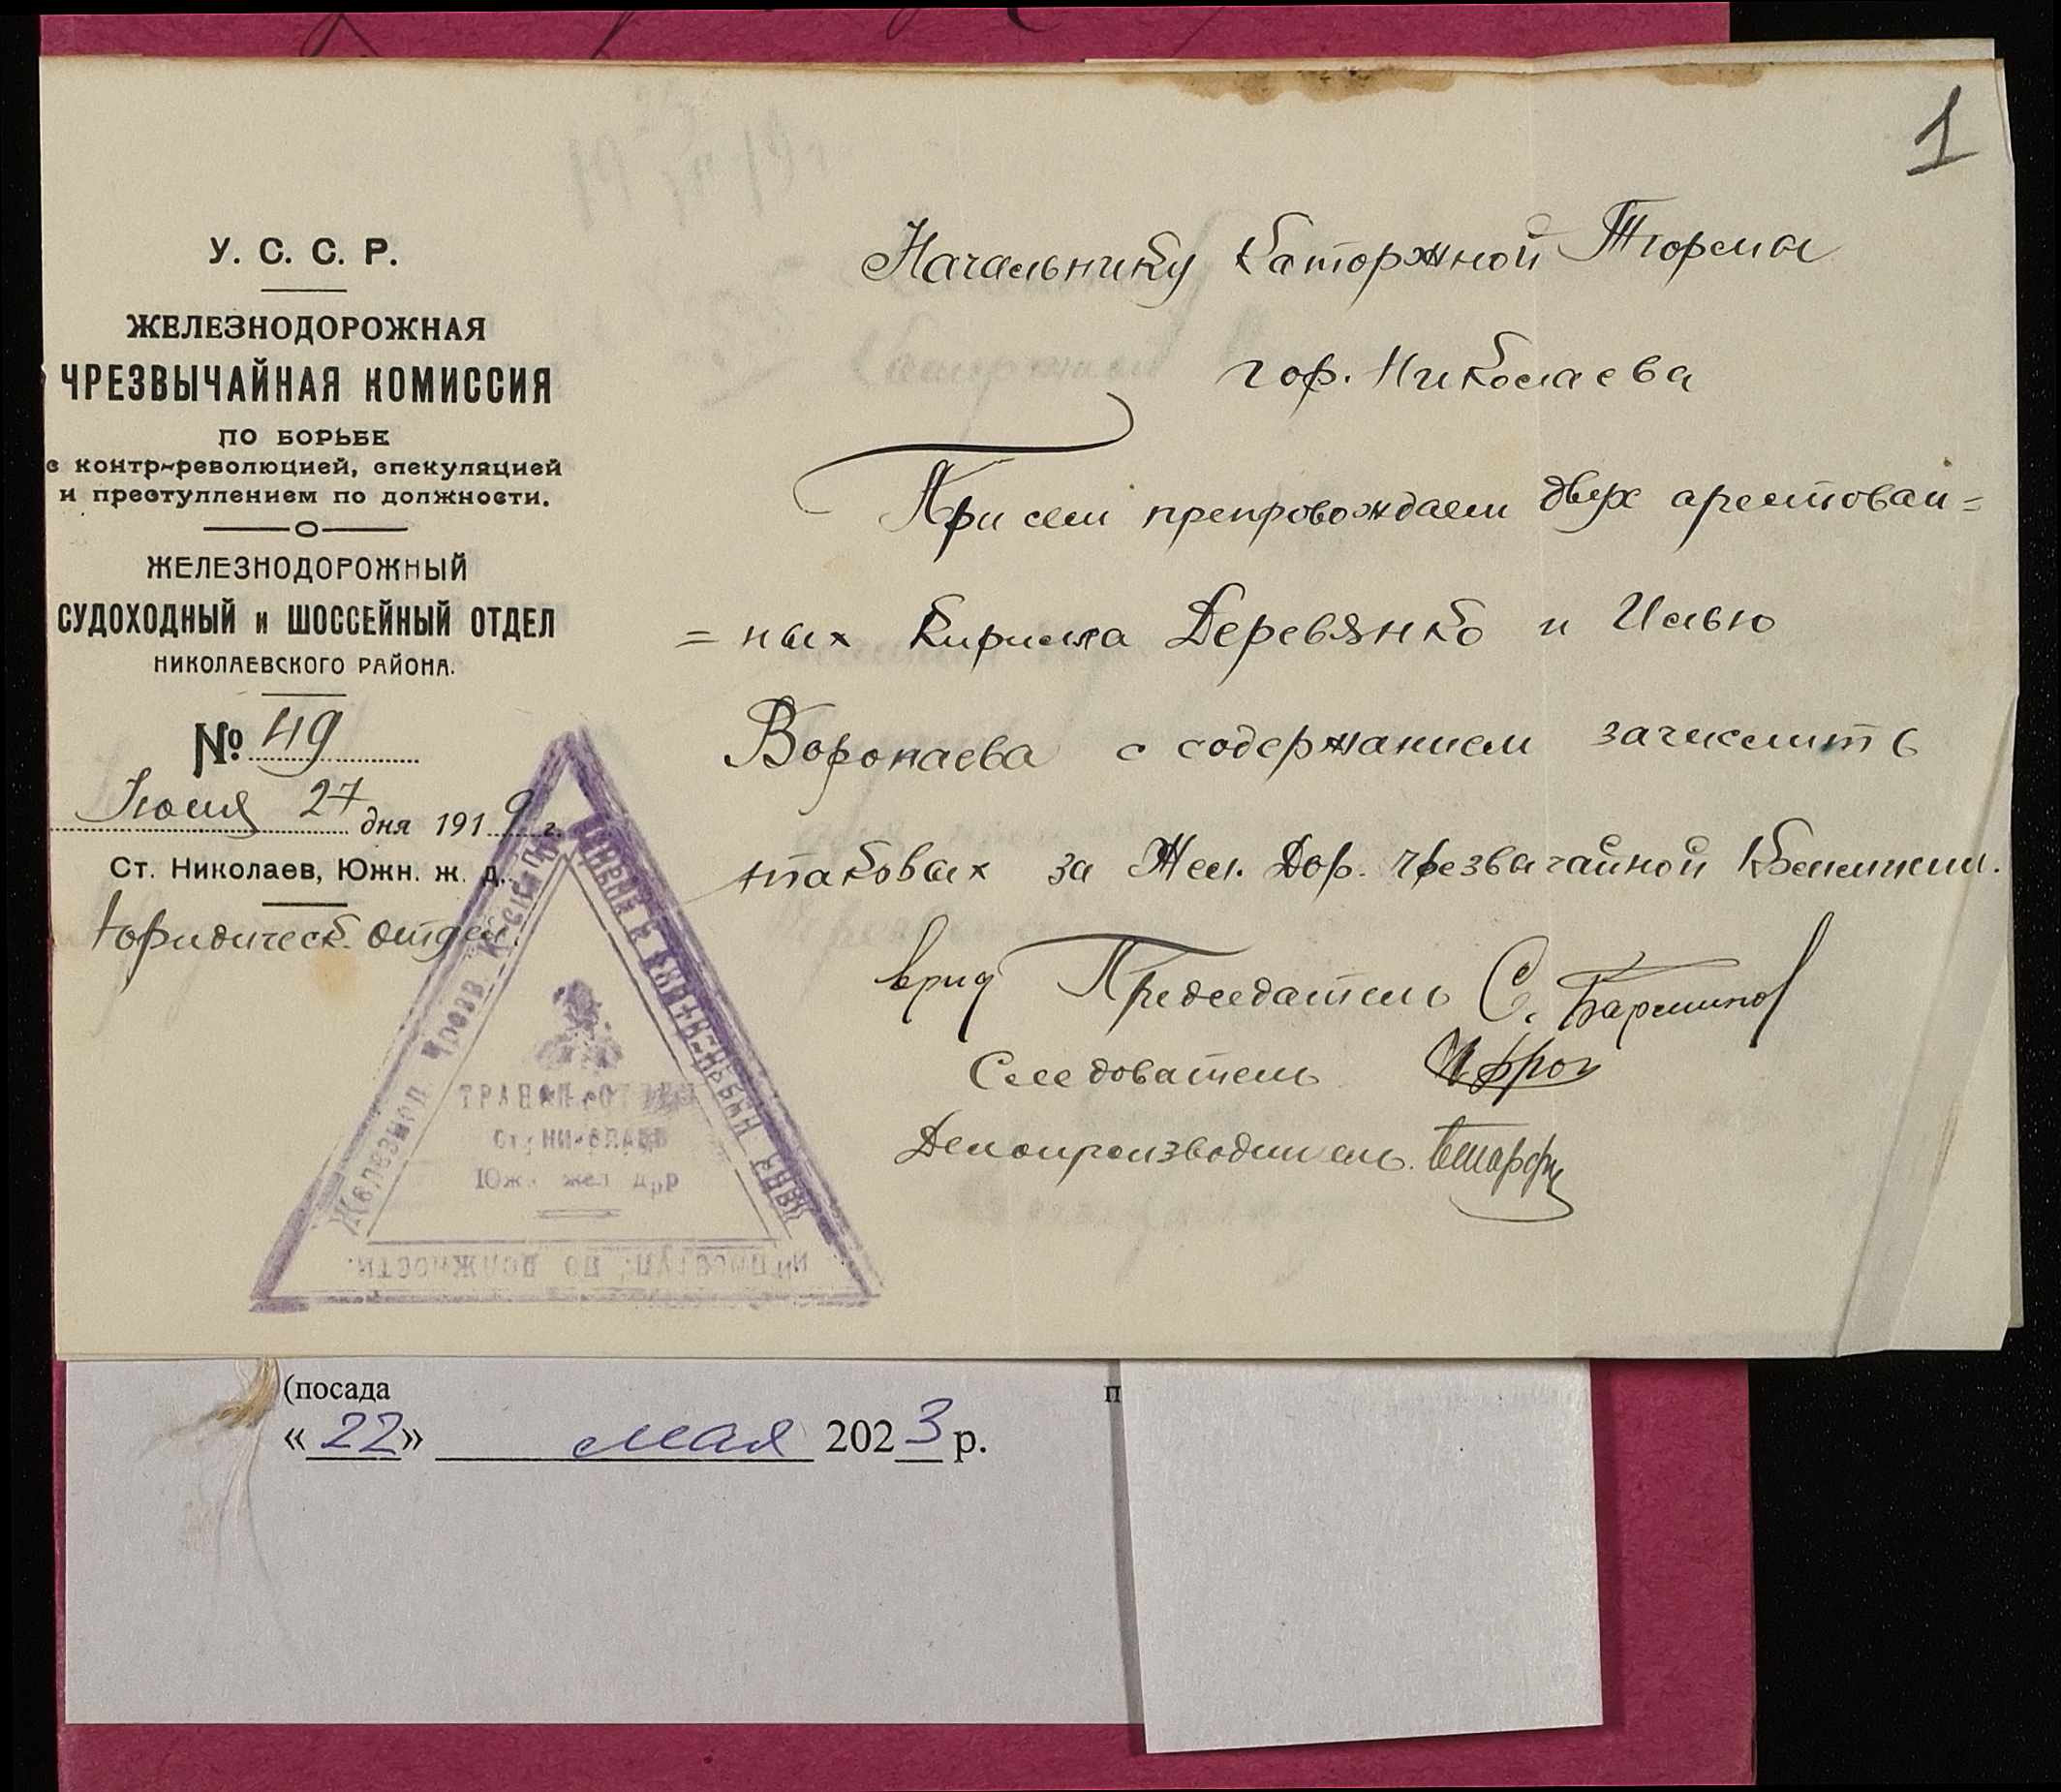 1
У. С. С. Р.
ЖЕЛЕЗНОДОРОЖНАЯ
ЧРЕЗВЫЧАЙНАЯ КОМИССИЯ
ПО БОРЬБЕ
с контр-революцией, спекуляцией
и преступлением по должности.
ЖЕЛЕЗНОДОРОЖНЫЙ
СУДОХОДНЫЙ и ШОССЕЙНЫЙ ОТДЕЛ
НИКОЛАЕВСКОГО РАЙОНА.
№ 49
Июля 27 дня 1919 г.
Ст. Николаев, Южн. ж. д.
Юридическ. отдел.
Начальнику Каторжной Тюрьмы
гор. Николаева
При сем препровождаем двух арестован=
=ных Кирилла Деревянко и Илью
Воропаева с содержанием зачислить
таковых за Жел. Дор. Чрезвычайной Комиссии.
врид Председатель С.
Следователь
Делопроизводитель
Железнод Чрезв
ТРАНСП. ОТДЕЛ
Ст. НИКОЛАЕВ
Южн жел дор
по должности.
(посада
п
«22» мая 2023 р.